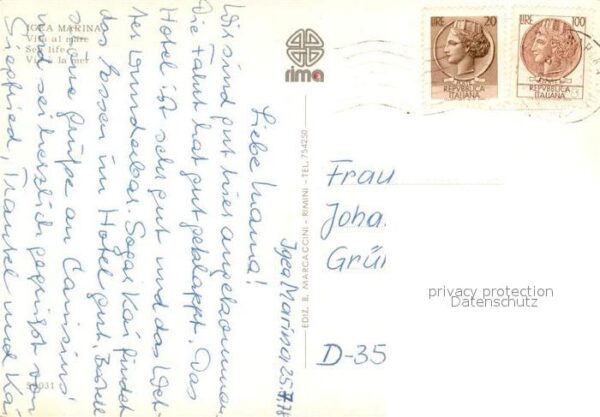 IGEA MARINA
Vita al mare
Sea life
Vie à la mer
rima
LIRE 20
REPVBBLICA
ITALIANA
LIRE 100
REPVBBLICA
ITALIANA
EDIZ. B. MARCACCINI - RIMINI - TEL. 754250
Igea Marina 25.7.78
Liebe Mama!
Wir sind gut hier angekommen.
Die Fahrt hat gut geklappt. Das
Hotel ist sehr gut und das Wet-
ter wunderbar. Sogar Kai findet
das Essen im Hotel gut. Bestell
schöne Grüße an
und sei herzlich gegrüßt von
Siegfried, Trautel und Kai
Frau
Joha
Grün
D-35
privacy protection
Datenschutz